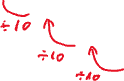 ÷10
÷10
÷10